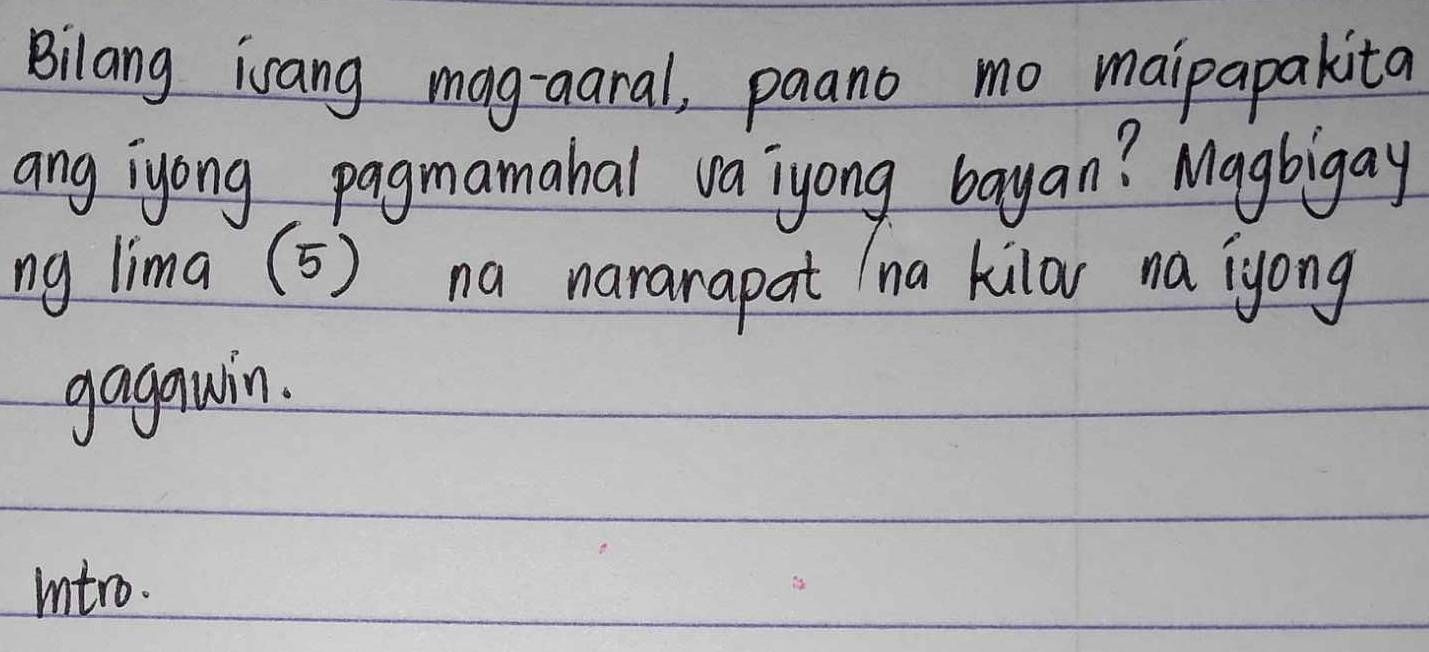 Bilang isang mag-aaral, paano mo maipapakita
ang iyong pagmamahal sa iyong bayan? Magbigay
ng lima (5) na nararapat na kilos na iyong
gagawin.
intro.